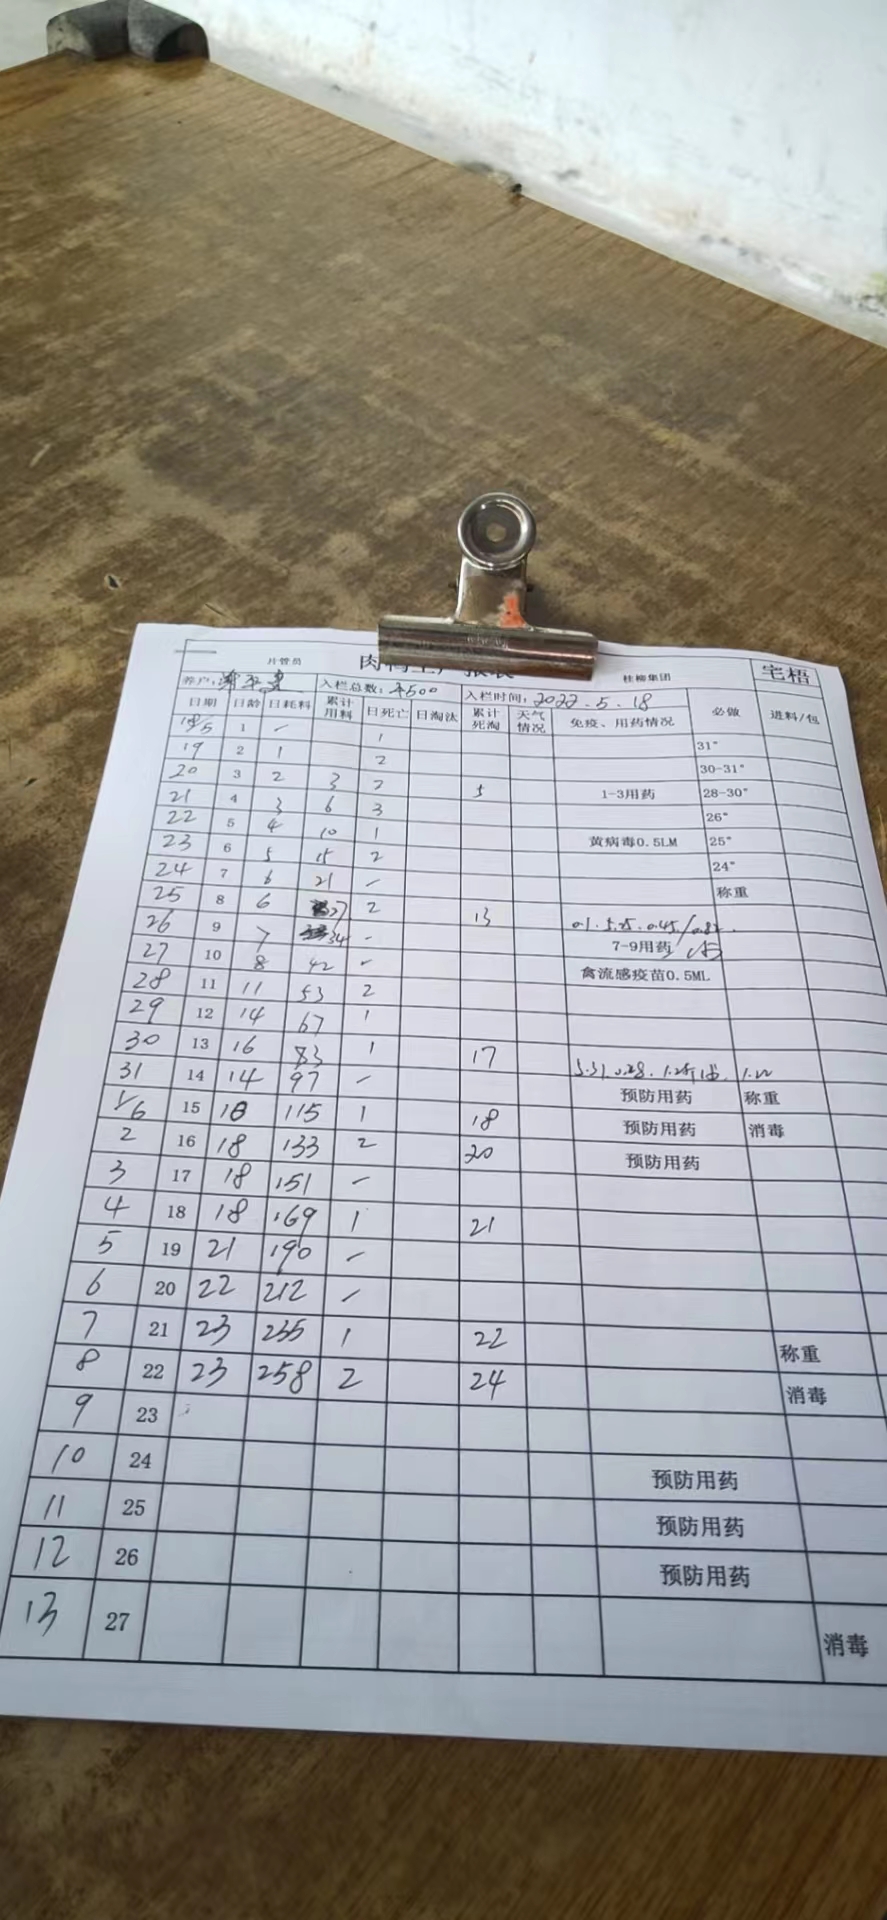 片管员 桂柳集团 宅梧
养户: 入栏总数:4500 入栏时间:2022.5.18
日期 日龄 日耗料 累计用料 日死亡 日淘汰 累计死淘 天气情况 免疫、用药情况 必做 进料/包
18/5 1 - 1 31°
19 2 1 2 30-31°
20 3 2 3 2 5 1-3用药 28-30°
21 4 3 6 3 26°
22 5 4 10 1 黄病毒0.5LM 25°
23 6 5 15 2 24°
24 7 6 21 - 称重
25 8 6 27 2 13
26 9 7 34 - 7-9用药
27 10 8 42 - 禽流感疫苗0.5ML
28 11 11 53 2
29 12 14 67 1
30 13 16 83 1 17
31 14 14 97 - 预防用药 称重
1/6 15 18 115 1 18 预防用药 消毒
2 16 18 133 2 20 预防用药
3 17 18 151 -
4 18 18 169 1 21
5 19 21 190 -
6 20 22 212 -
7 21 23 235 1 22 称重
8 22 23 258 2 24 消毒
9 23
10 24 预防用药
11 25 预防用药
12 26 预防用药
13 27 消毒